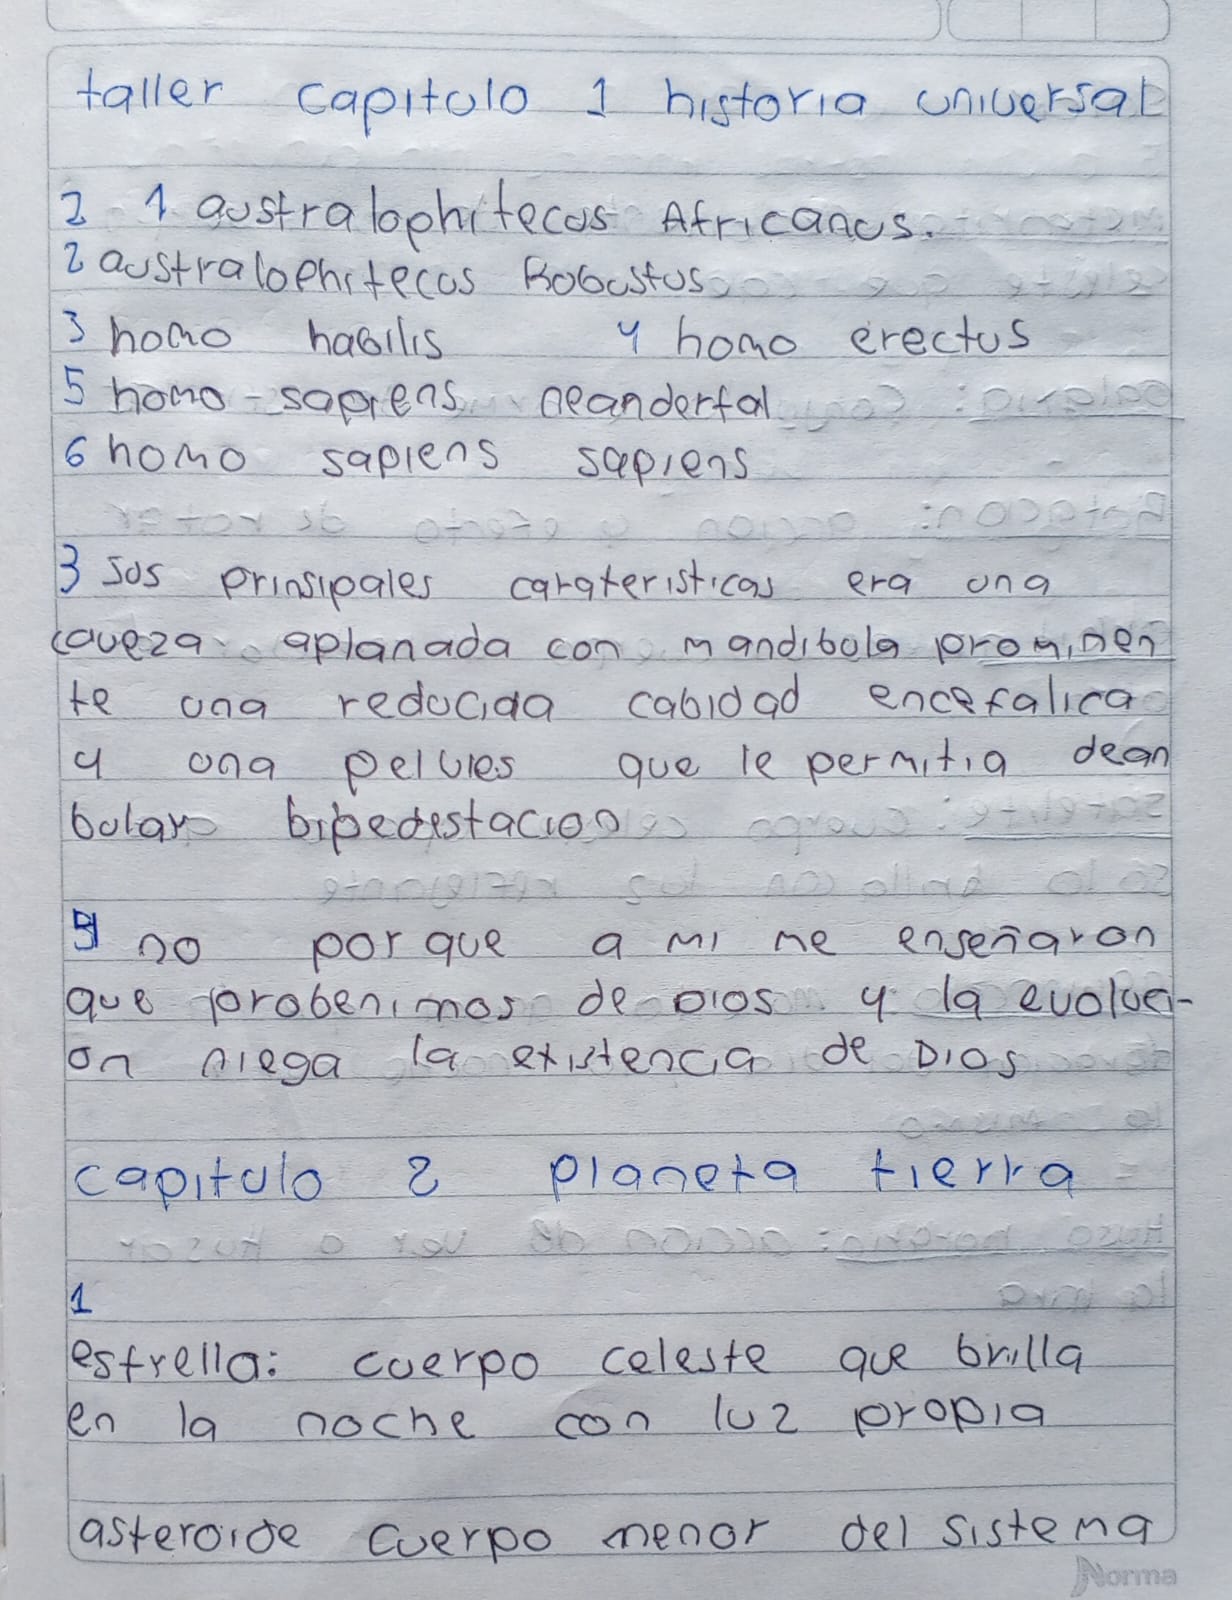 taller capitulo 1 historia universal
2 1 australophitecus Africanus.
2 australophitecus Robustus
3 homo habilis 4 homo erectus
5 homo sapiens neandertal
6 homo sapiens sapiens
3 sus prinsipales caraterísticas era una
caveza aplanada con mandibula prominen
te una reducida cabidad encefalica
y una pelvies que le permitia dean
bular bipedestacion
no por que a mi me enseñaron
que probenimos de Dios y la evoluci-
on niega la existencia de Dios
capitulo 2 planeta tierra
1
estrella: cuerpo celeste que brilla
en la noche con luz propia
asteroide cuerpo menor del sistema
Norma